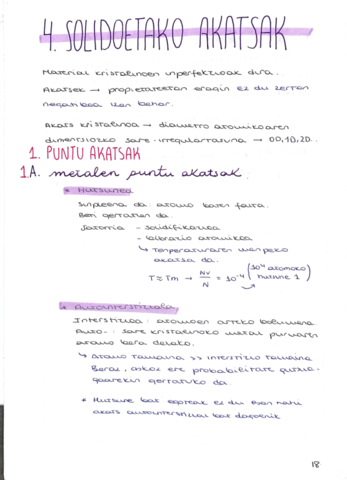 4. SOLIDOETAKO AKATSAK
Material kristalinoen inperfekzioak dira.
Akatsek → propietateetan eragin ez du zertan
negatiboa izan behar.
Akats kristalinoa → diametro atomikoaren
dimentsioko sare-irregulartasuna → 0D, 1D, 2D...
1. PUNTU AKATSAK
1A. metalen puntu akatsak
* Hutsunea
Sinpleena da: atomo baten falta.
Beti gertatzen da.
Jatorria - solidifikazioa
- bibrazio atomikoa
↳ Tenperaturaren menpeko
akatsa da.
T≈Tm → Nv/N = 10⁻⁴ (10⁴ atomoko hutsune 1)
* Autointerstiziala
Interstizioa: atomoen arteko bolumena
Auto-: sare kristalinoko metal puruaren
atomo bera delako.
↳ Atomo tamaina >> interstizio tamaina
Beraz, askoz ere probabilitate gutxia-
goarekin gertatuko da.
* Hutsune bat egoteak ez du esan nahi
akats autointerstizial bat dagoenik
18